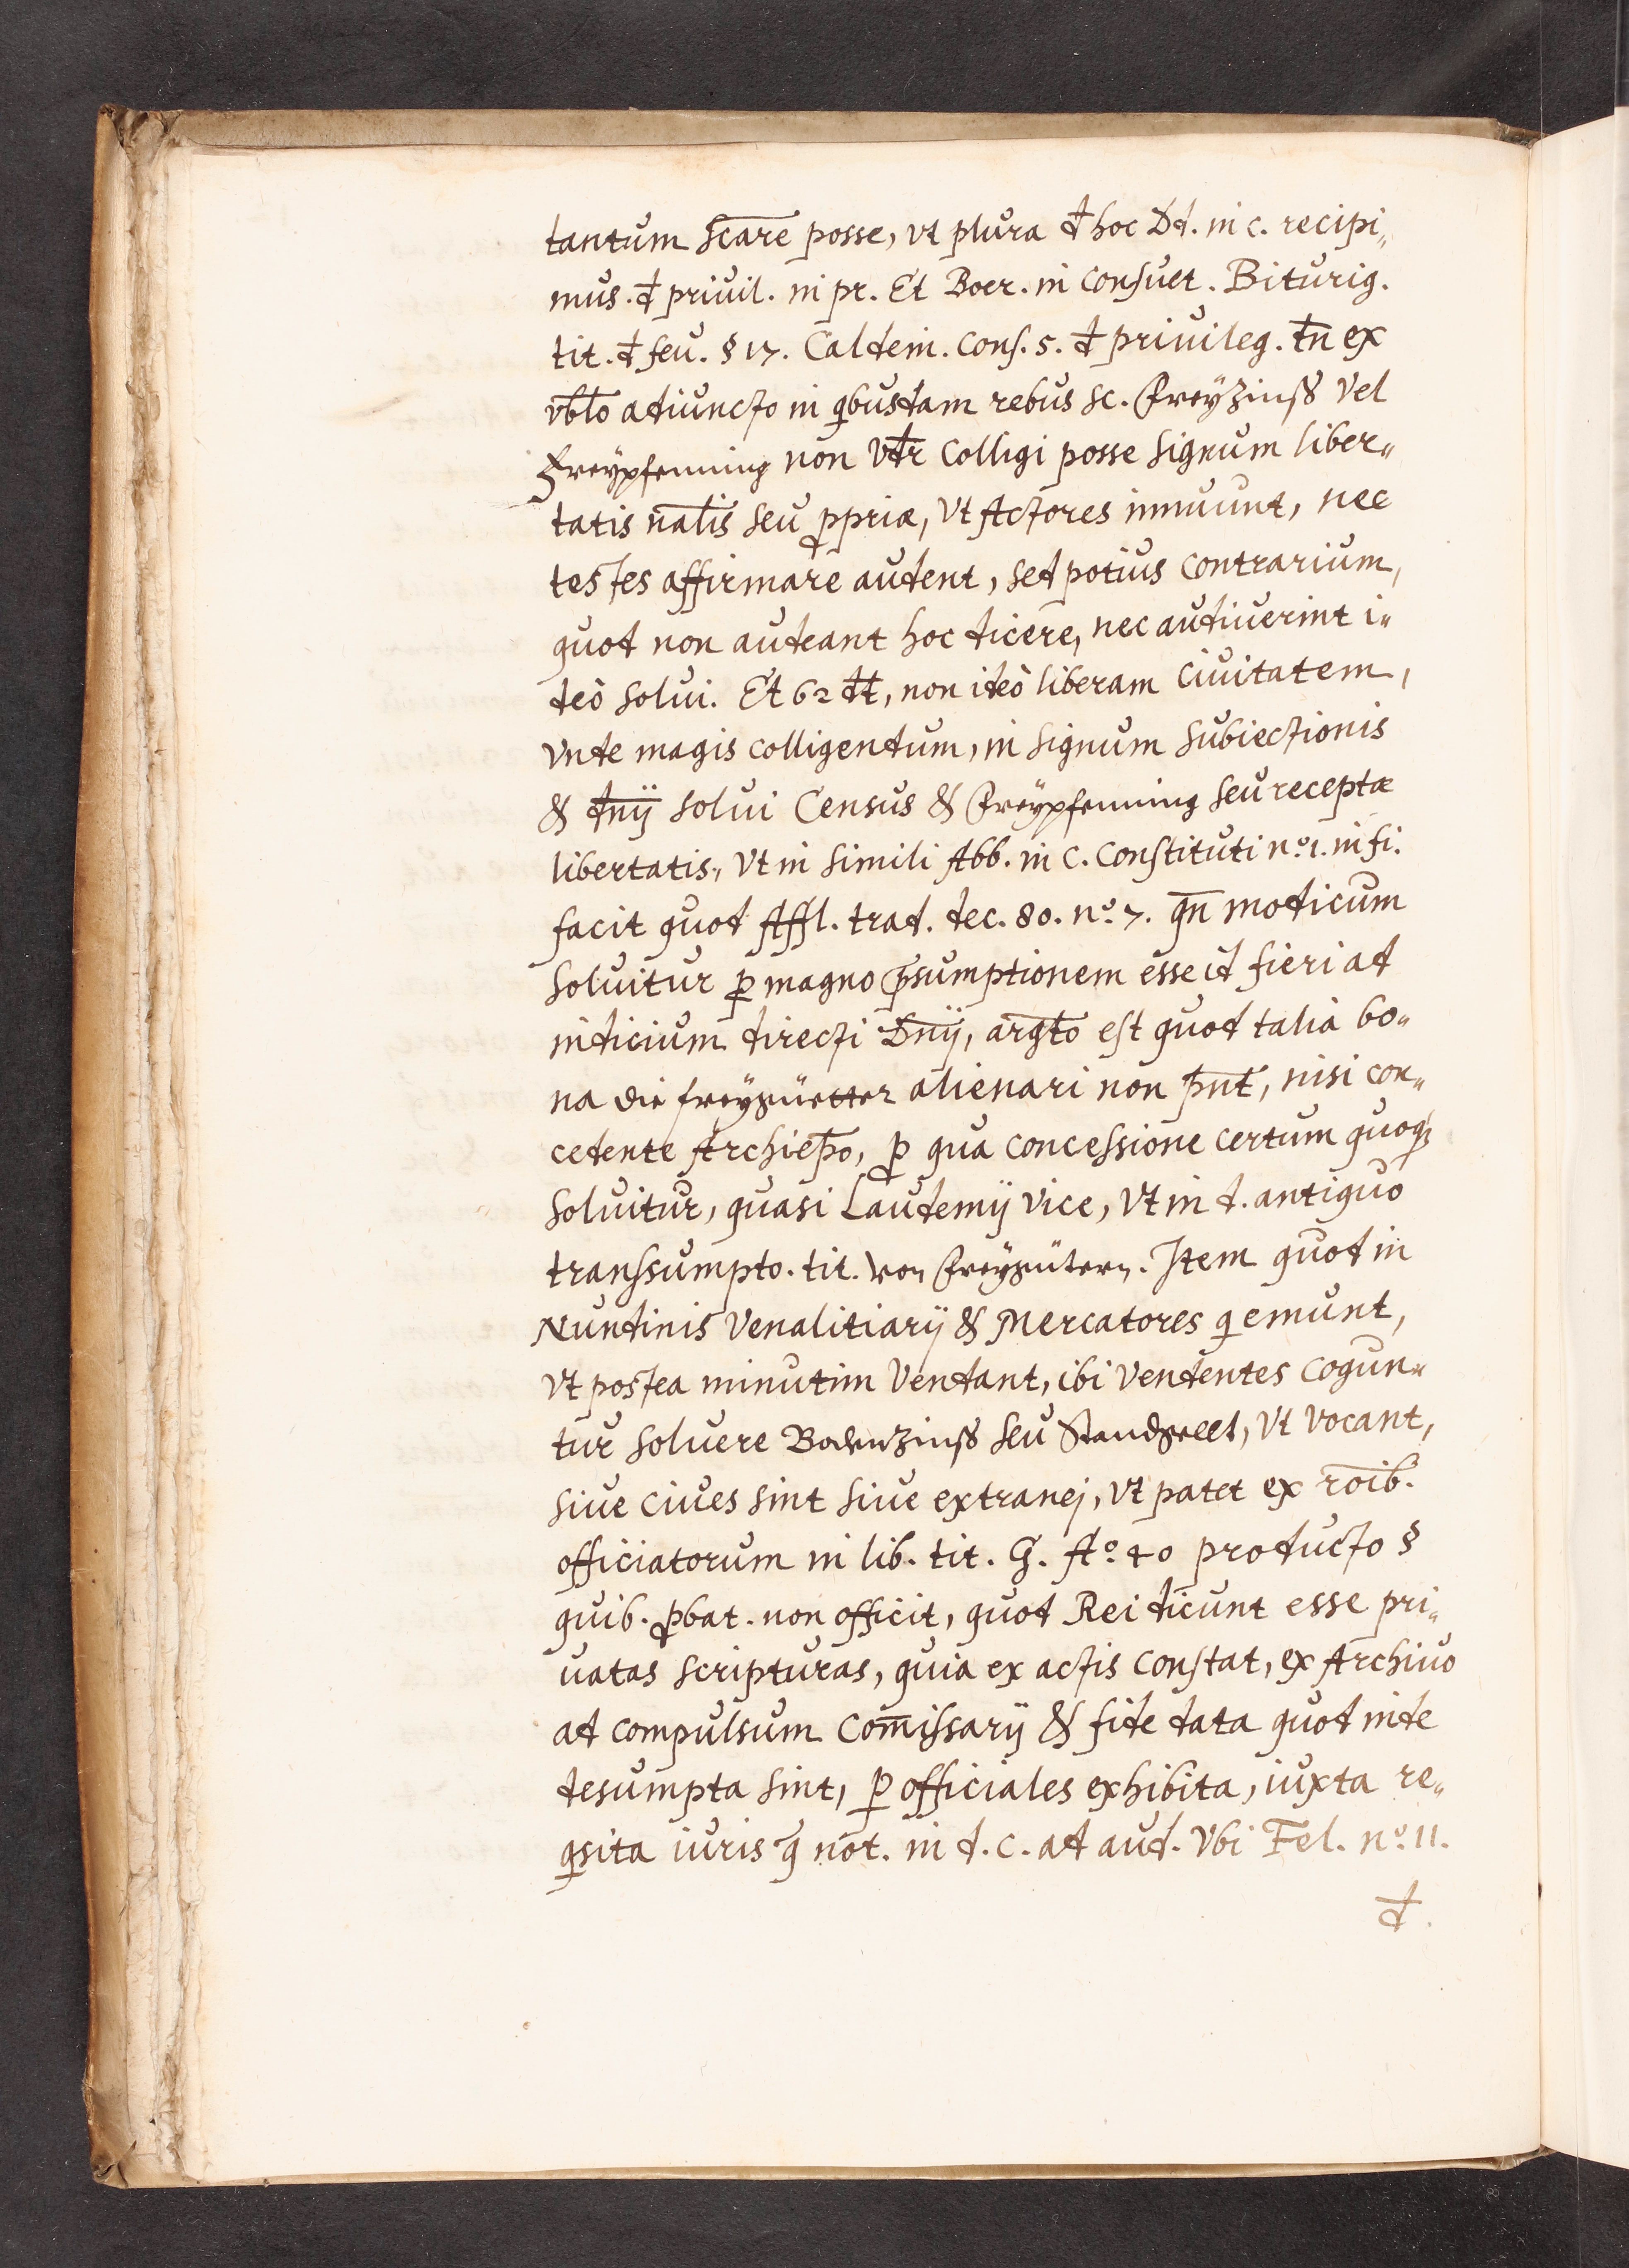 tantum scare posse, vt plura đ hoc Dd. in c. recipi„
mus. đ priuil. in pr. Et Boer. in consuet. Biturig.
tit. đ feu. § 17. Caldem. cons. 5. đ priuileg. tn̄ ex
vb̄lo adiuncto in qbusdam rebus sc. Freyzinß vel
Freypfenning non vdr̄ colligi posse signum liber„
tatis nālis seu ꝓpriæ, vt Actores innuunt, nec
testes affirmare audent, sed potius contrarium,
quod non audeant hoc dicere, nec audiuerint i„
deò solui. Et 62 dt̄, non ideò liberam Ciuitatem,
vnde magis colligendum, in signum subiectionis
& dn̄ij solui Census & Freypfenning seu receptæ
libertatis, vt in simili Abb. in c. constituti nº. 1. in fi.
facit quod Affl. trad. dec. 80. nº. 7. qn̄ modicum
soluitur ꝑ magno p̄sumptionem esse id fieri ad
indicium directi Dn̄ij, argt̄o est quod talia bo„
na die freygüetter alienari non pn̄t, nisi con„
cedente Archiep̄o, ꝓ qua concessione certum quoqꝫ
soluitur, quasi Laudemij vice, vt in d. antiquo
transsumpto. tit. von Freygütern. Item quod in
Nundinis Venalitiarij & Mercatores q emunt,
vt postea minutim vendant, ibi vendentes cogun„
tur soluere Bodenzinß seu Standgellt, vt vocant,
siue ciues sint siue extranej, vt patet ex rōib.
officiatorum in lib. tit. G. Aº. 40 producto §
quib. ꝓbat. non officit, quod Rei dicunt esse pri„
uatas scripturas, quia ex actis constat, ex Archiuo
ad compulsum Com̄issarij & fide data quod inde
desumpta sint, ꝑ officiales exhibita, iuxta re„
qsita iuris q̄ not. in d. c. ad aud. vbi Fel. nº. 11.
đ.